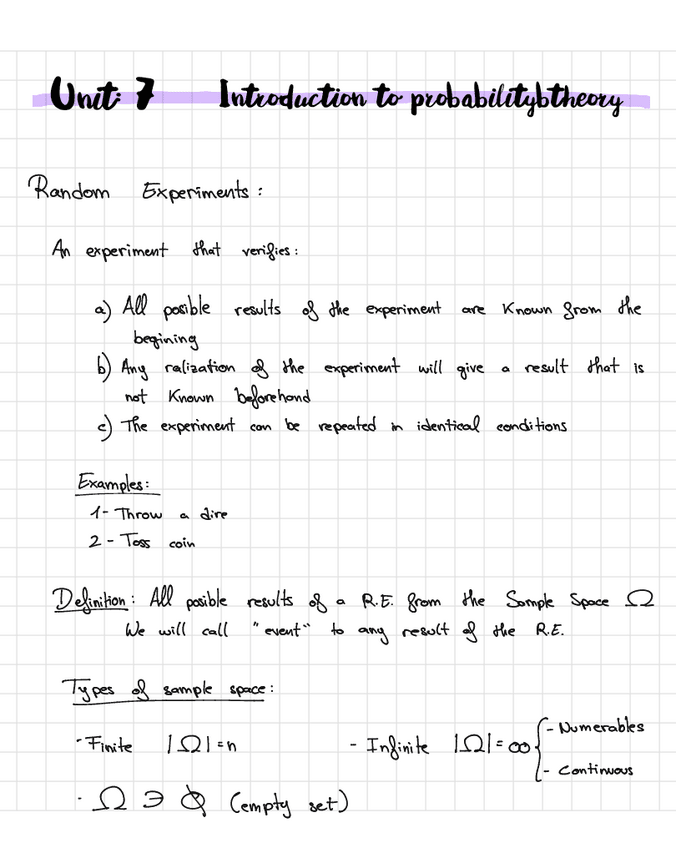 Unit 7 Introduction to probabilitybtheory
Random Experiments:
An experiment that verifies:
a) All posible results of the experiment are Known from the
begining
b) Any ralization of the experiment will give a result that is
not Known beforehand
c) The experiment can be repeated in identical conditions
Examples:
1- Throw a dire
2- Toss coin
Definition: All posible results of a R.E. from the Sample Space Ω
We will call "event" to any result of the R.E.
Types of sample space:
- Finite |Ω| = n - Infinite |Ω| = ∞ { - Numerables
- Continuous
· Ω ∋ ∅ (empty set)